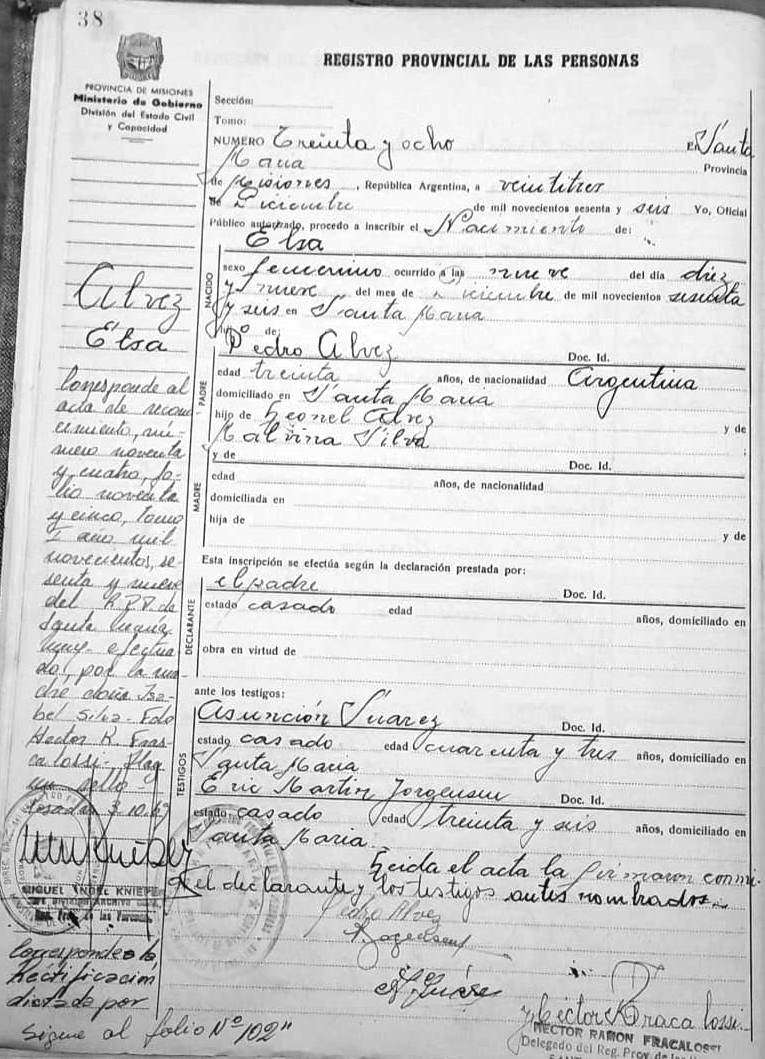 38
REGISTRO PROVINCIAL DE LAS PERSONAS
PROVINCIA DE MISIONES
Ministerio de Gobierno
División del Estado Civil
y Capacidad
Sección:
Tomo:
NUMERO Treinta y ocho EN Santa
Maria Provincia
de Misiones, República Argentina, a veintitres
de Diciembre de mil novecientos sesenta y seis Yo, Oficial
Público autorizado, procedo a inscribir el Nacimiento de:
Elsa
NACIDO
sexo femenino ocurrido a las nueve del día diez
y nueve del mes de Diciembre de mil novecientos sesenta
y seis en Santa Maria
de:
PADRE
Pedro Alvez Doc. Id.
edad treinta años, de nacionalidad Argentina
domiciliado en Santa Maria
hijo de Leonel Alvez y de
Malvina Silva ;
MADRE
y de Doc. Id.
edad años, de nacionalidad
domiciliada en
hija de y de
Esta inscripción se efectúa según la declaración prestada por:
DECLARANTE
el padre Doc. Id.
estado casado edad años, domiciliado en
obra en virtud de
ante los testigos:
TESTIGOS
Asunción Suarez Doc. Id.
estado casado edad cuarenta y tres años, domiciliado en
Santa Maria
Eric Martin Jorgensen Doc. Id.
estado casado edad treinta y seis años, domiciliado en
Santa Maria.
Leida el acta la firmaron conmi-
go el declarante y los testigos antes nombrados.
Pedro Alvez
Hector R Fracalossi
HECTOR RAMON FRACALOSSI
Delegado del Reg. Prov. de las
Alvez
Elsa
Corresponde al
acta de recono
cimiento, nú-
mero noventa
y cuatro, fo-
lio noventa
y cinco, tomo
I año mil
novecientos, se-
senta y nueve
del R.P.P. de
Santa Maria,
efectua
do, por la ma-
dre doña Isa-
bel Silva. Fdo
Hector R. Fra
calossi- Hay
un sello-
Posadas 3.10.69
MIGUEL ANGEL KNIEPER
JEFE DIVISION ARCHIVO GRAL.
Reg. Prov. de las Personas
Corresponde a la
Rectificación
dictada por
Sigue al folio Nº 102"